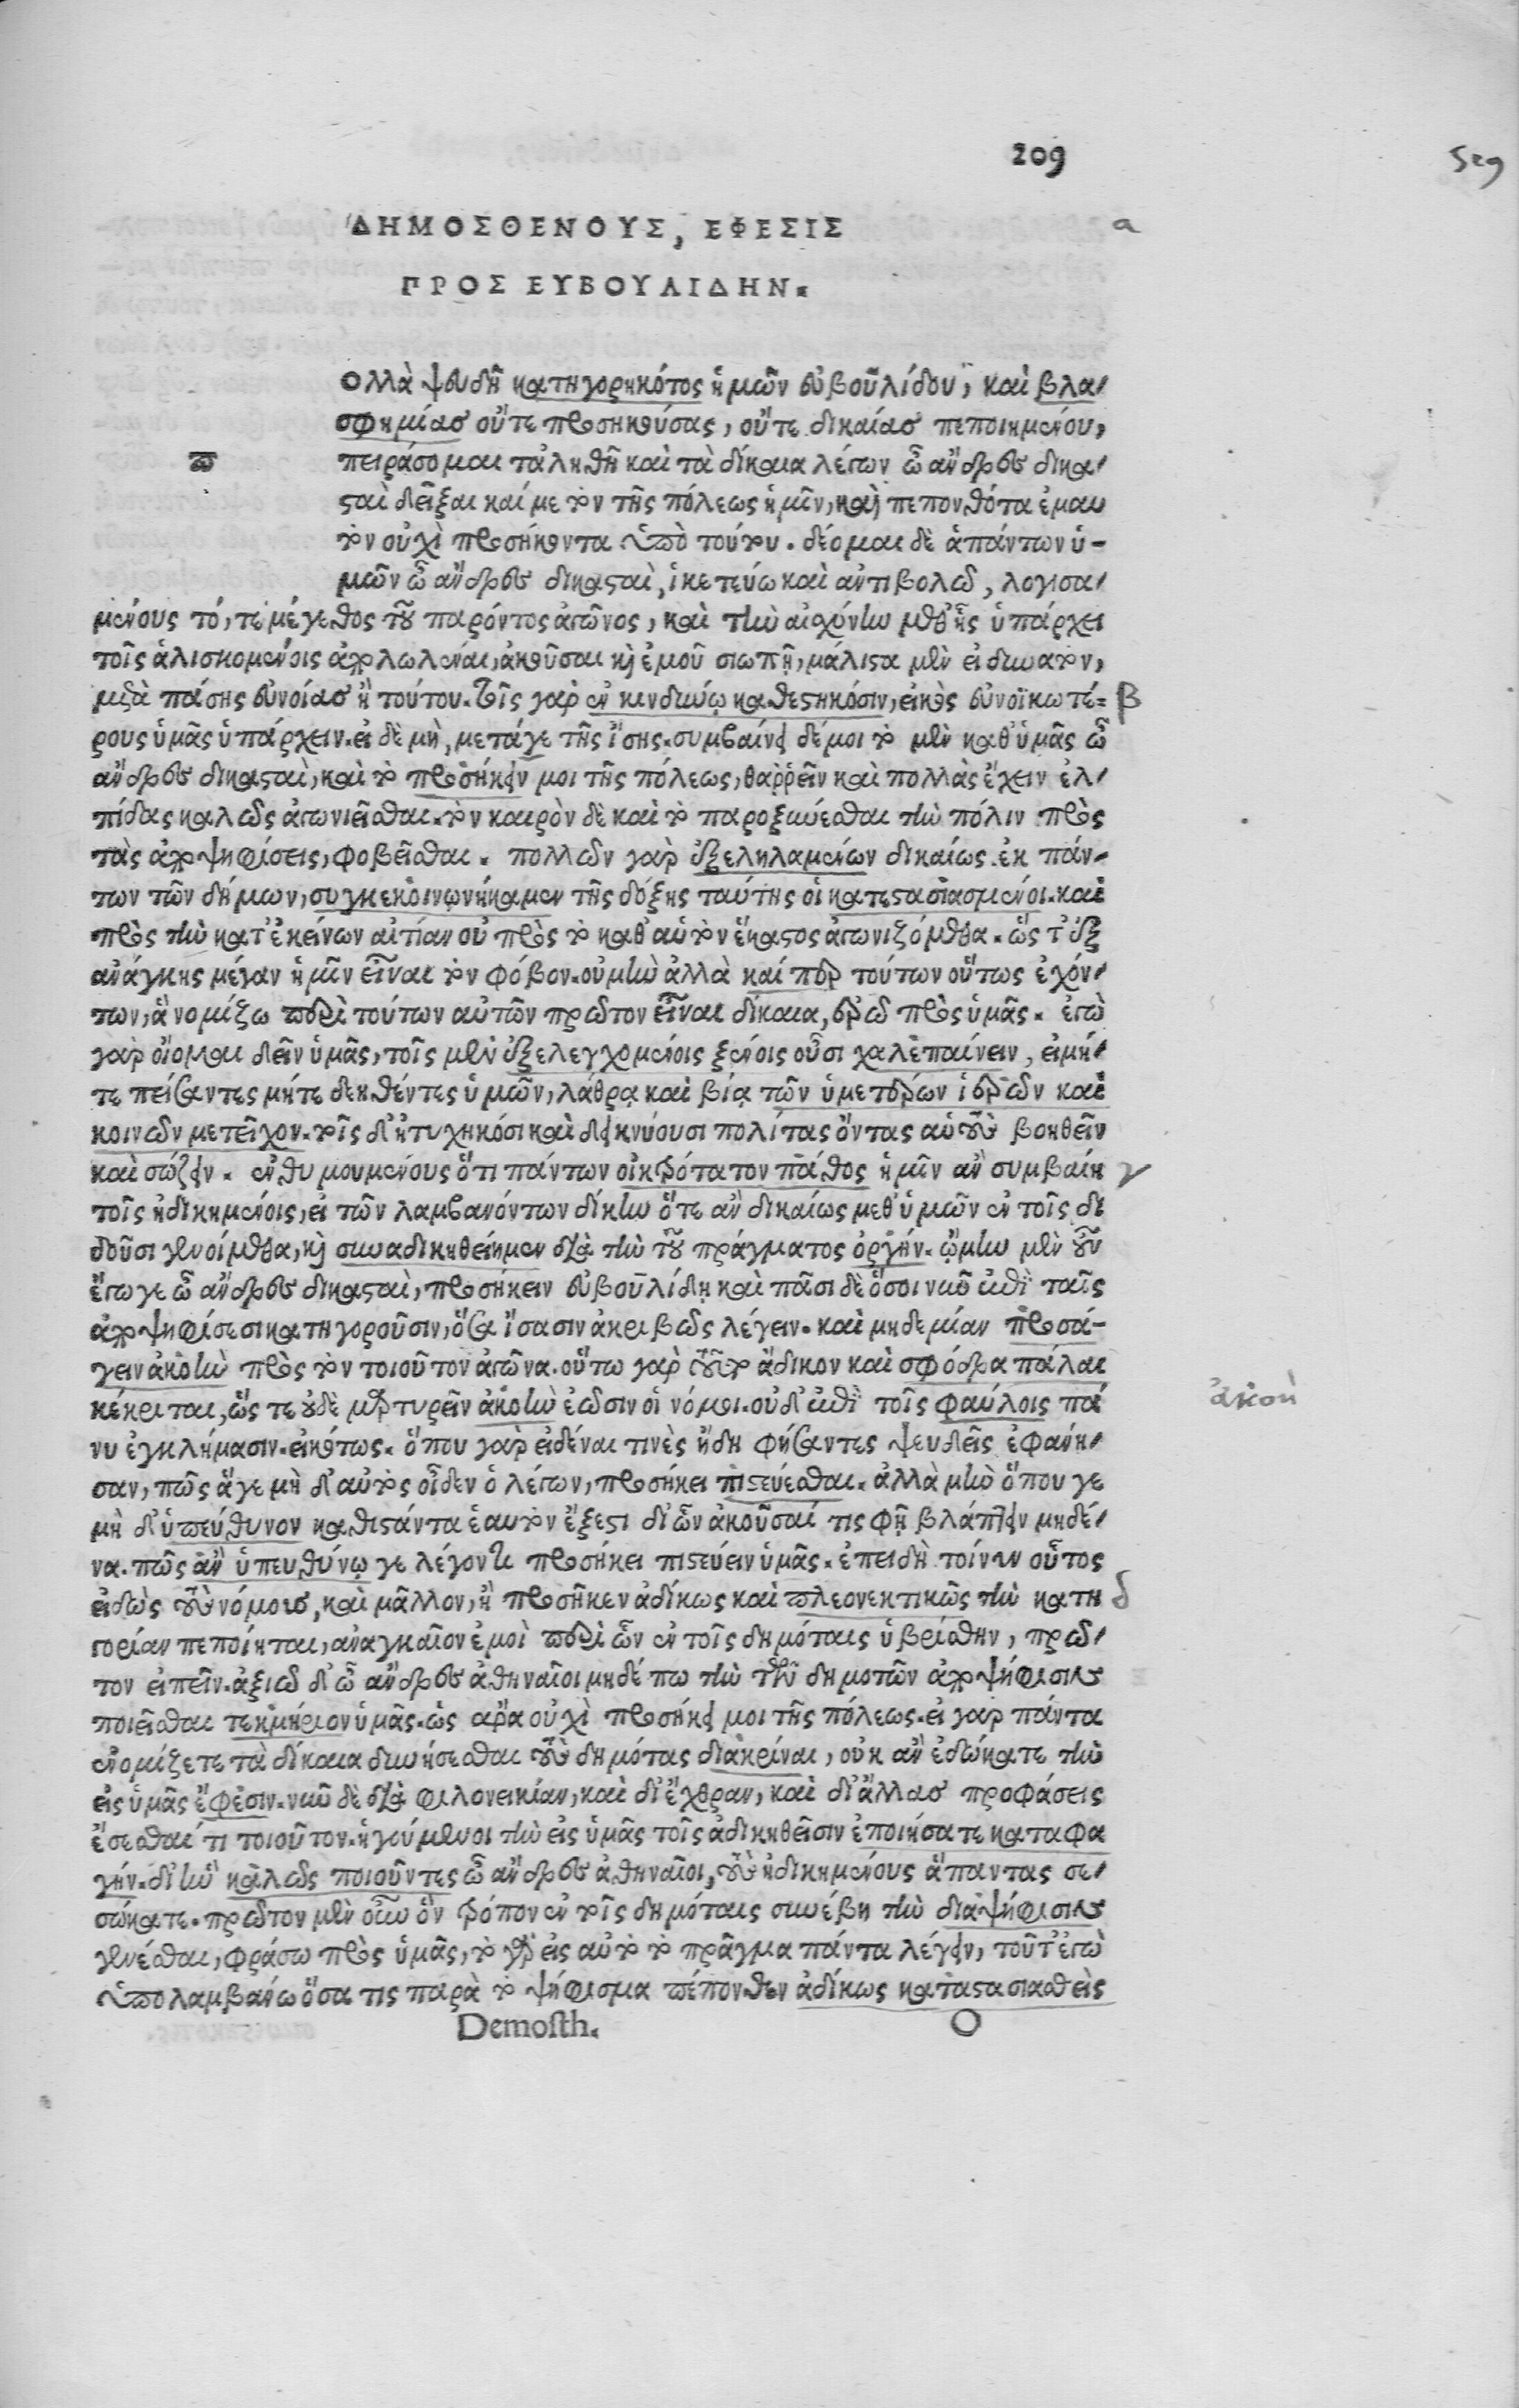 209
ΔΗΜΟΣΘΕΝΟΥΣ, ΕΦΕΣΙΣ
a
ΠΡΟΣ ΕΥΒΟΥΛΙΔΗΝ.
ολλὰ ψευδῆ κατηγορηκότος ἡμῶν εὐβουλίδου, καὶ βλα-
σφημίας οὔτε προσηκούσας, οὔτε δικαίας πεποιημένου,
π
πειράσομαι τἀληθῆ καὶ τὰ δίκαια λέγων ὦ ἄνδρες δικα-
σταὶ δεῖξαι καί με τὸν τῆς πόλεως ἡμῖν, καὶ πεπονθότα ἐμαυ
τὸν οὐχὶ προσήκοντα ὑπὸ τούτου. δέομαι δὲ ἁπάντων ὑ-
μῶν ὦ ἄνδρες δικασταὶ, ἱκετεύω καὶ ἀντιβολῶ, λογισα-
μένους τό, τε μέγεθος τοῦ παρόντος ἀγῶνος, καὶ τὴν αἰσχύνην μεθ' ἧς ὑπάρχει
τοῖς ἁλισκομένοις ἀπολωλέναι, ἀκοῦσαι καὶ ἐμοῦ σιωπῇ, μάλιστα μὲν εἰ δυνατὸν,
μετὰ πάσης εὐνοίας ἢ τούτου. τοῖς γὰρ ἐν κινδύνῳ καθεστηκόσιν, εἰκὸς εὐνοϊκωτέ-
β
ρους ὑμᾶς ὑπάρχειν. εἰ δὲ μὴ, μετάγε τῆς ἴσης. συμβαίνει δέ μοι τὸ μὲν καθ' ὑμᾶς ὦ
ἄνδρες δικασταὶ, καὶ τὸ προσήκειν μοι τῆς πόλεως, θαῤῥεῖν καὶ πολλὰς ἔχειν ἐλ-
πίδας καλῶς ἀγωνιεῖσθαι. τὸν καιρὸν δὲ καὶ τὸ παροξυνέσθαι τὴν πόλιν πρὸς
τὰς ἀποψηφίσεις, φοβεῖσθαι. πολλῶν γὰρ ἐξεληλαμένων δικαίως ἐκ πάν-
των τῶν δήμων, συγκεκοινωνήκαμεν τῆς δόξης ταύτης οἱ κατεστασιασμένοι. καὶ
πρὸς τὴν κατ' ἐκείνων αἰτίαν οὐ πρὸς τὸ καθ' αὑτὸν ἕκαστος ἀγωνιζόμεθα. ὥς τ' ἐξ
ἀνάγκης μέγαν ἡμῖν εἶναι τὸν φόβον. οὐμὴν ἀλλὰ καί περ τούτων οὕτως ἐχόν-
των, ἃ νομίζω περὶ τούτων αὐτῶν πρῶτον εἶναι δίκαια, ἐρῶ πρὸς ὑμᾶς. ἐγὼ
γὰρ οἴομαι δεῖν ὑμᾶς, τοῖς μὲν ἐξελεγχομένοις ξένοις οὖσι χαλεπαίνειν, εἰ μή-
τε πείσαντες μήτε δεηθέντες ὑμῶν, λάθρᾳ καὶ βίᾳ τῶν ὑμετέρων ἱερῶν καὶ
κοινῶν μετεῖχον. τοῖς δ' ἠτυχηκόσι καὶ δεικνύουσι πολίτας ὄντας αὑτοὺς βοηθεῖν
καὶ σώζειν. ἐνθυμουμένους ὅτι πάντων οἰκτρότατον πάθος ἡμῖν ἂν συμβαίη
γ
τοῖς ἠδικημένοις, εἰ τῶν λαμβανόντων δίκην ὅτε ἂν δικαίως μεθ' ὑμῶν ἐν τοῖς δι
δοῦσι γενοίμεθα, καὶ συναδικηθείημεν διὰ τὴν τοῦ πράγματος ὀργήν. ᾤμην μὲν οὖν
ἔγωγε ὦ ἄνδρες δικασταὶ, προσήκειν εὐβουλίδῃ καὶ πᾶσι δὲ ὅσοι νῦν ἐπὶ ταῖς
ἀποψηφίσεσι κατηγοροῦσιν, ὅσα ἴσασιν ἀκριβῶς λέγειν. καὶ μηδεμίαν προσά-
γειν ἀκοὴν πρὸς τὸν τοιοῦτον ἀγῶνα. οὕτω γὰρ τοῦτο ἄδικον καὶ σφόδρα πάλαι
κέκριται, ὥς τε οὐδὲ μαρτυρεῖν ἀκοὴν ἐῶσιν οἱ νόμοι. οὐδ' ἐπὶ τοῖς φαύλοις πά
ἀκοὴ
νυ ἐγκλήμασιν. εἰκότως. ὅπου γὰρ εἰδέναι τινὲς ἤδη φήσαντες ψευδεῖς ἐφάνη-
σαν, πῶς ἅγε μὴ δ' αὐτὸς οἶδεν ὁ λέγων, προσήκει πιστεύεσθαι. ἀλλὰ μὴν ὅπου γε
μὴ δ' ὑπεύθυνον καθιστάντα ἑαυτὸν ἔξεστι δι' ὧν ἀκοῦσαί τις φῇ βλάπτειν μηδέ-
να. πῶς ἂν ὑπευθύνῳ γε λέγοντι προσήκει πιστεύειν ὑμᾶς. ἐπειδὴ τοίνυν οὗτος
εἰδὼς τοὺς νόμους, καὶ μᾶλλον, ἢ προσῆκεν ἀδίκως καὶ πλεονεκτικῶς τὴν κατη
δ
γορίαν πεποίηται, ἀναγκαῖον ἐμοὶ περὶ ὧν ἐν τοῖς δημόταις ὑβρίσθην, πρῶ-
τον εἰπεῖν. ἀξιῶ δ' ὦ ἄνδρες ἀθηναῖοι μηδέ πω τὴν τῶν δημοτῶν ἀποψήφισιν
ποιεῖσθαι τεκμήριον ὑμᾶς. ὡς ἄρα οὐχὶ προσήκει μοι τῆς πόλεως. εἰ γὰρ πάντα
ἐνομίζετε τὰ δίκαια δυνήσεσθαι τοὺς δημότας διακρίναι, οὐκ ἂν ἐδώκατε τὴν
εἰς ὑμᾶς ἔφεσιν. νῦν δὲ διὰ φιλονεικίαν, καὶ δι' ἔχθραν, καὶ δι' ἄλλας προφάσεις
ἔσεσθαί τι τοιοῦτον. ἡγούμενοι τὴν εἰς ὑμᾶς τοῖς ἀδικηθεῖσιν ἐποιήσατε καταφα
γήν. δι' ἣν καλῶς ποιοῦντες ὦ ἄνδρες ἀθηναῖοι, τοὺς ἠδικημένους ἅπαντας σε-
σώκατε. πρῶτον μὲν οὖν ὃν τρόπον ἐν τοῖς δημόταις συνέβη τὴν διαψήφισιν
γενέσθαι, φράσω πρὸς ὑμᾶς, τὸ γὰρ εἰς αὐτὸ τὸ πρᾶγμα πάντα λέγειν, τοῦτ' ἐγὼ
ὑπολαμβάνω ὅσα τις παρὰ τὸ ψήφισμα πέπονθεν ἀδίκως καταστασιασθεὶς
Demosth.
O